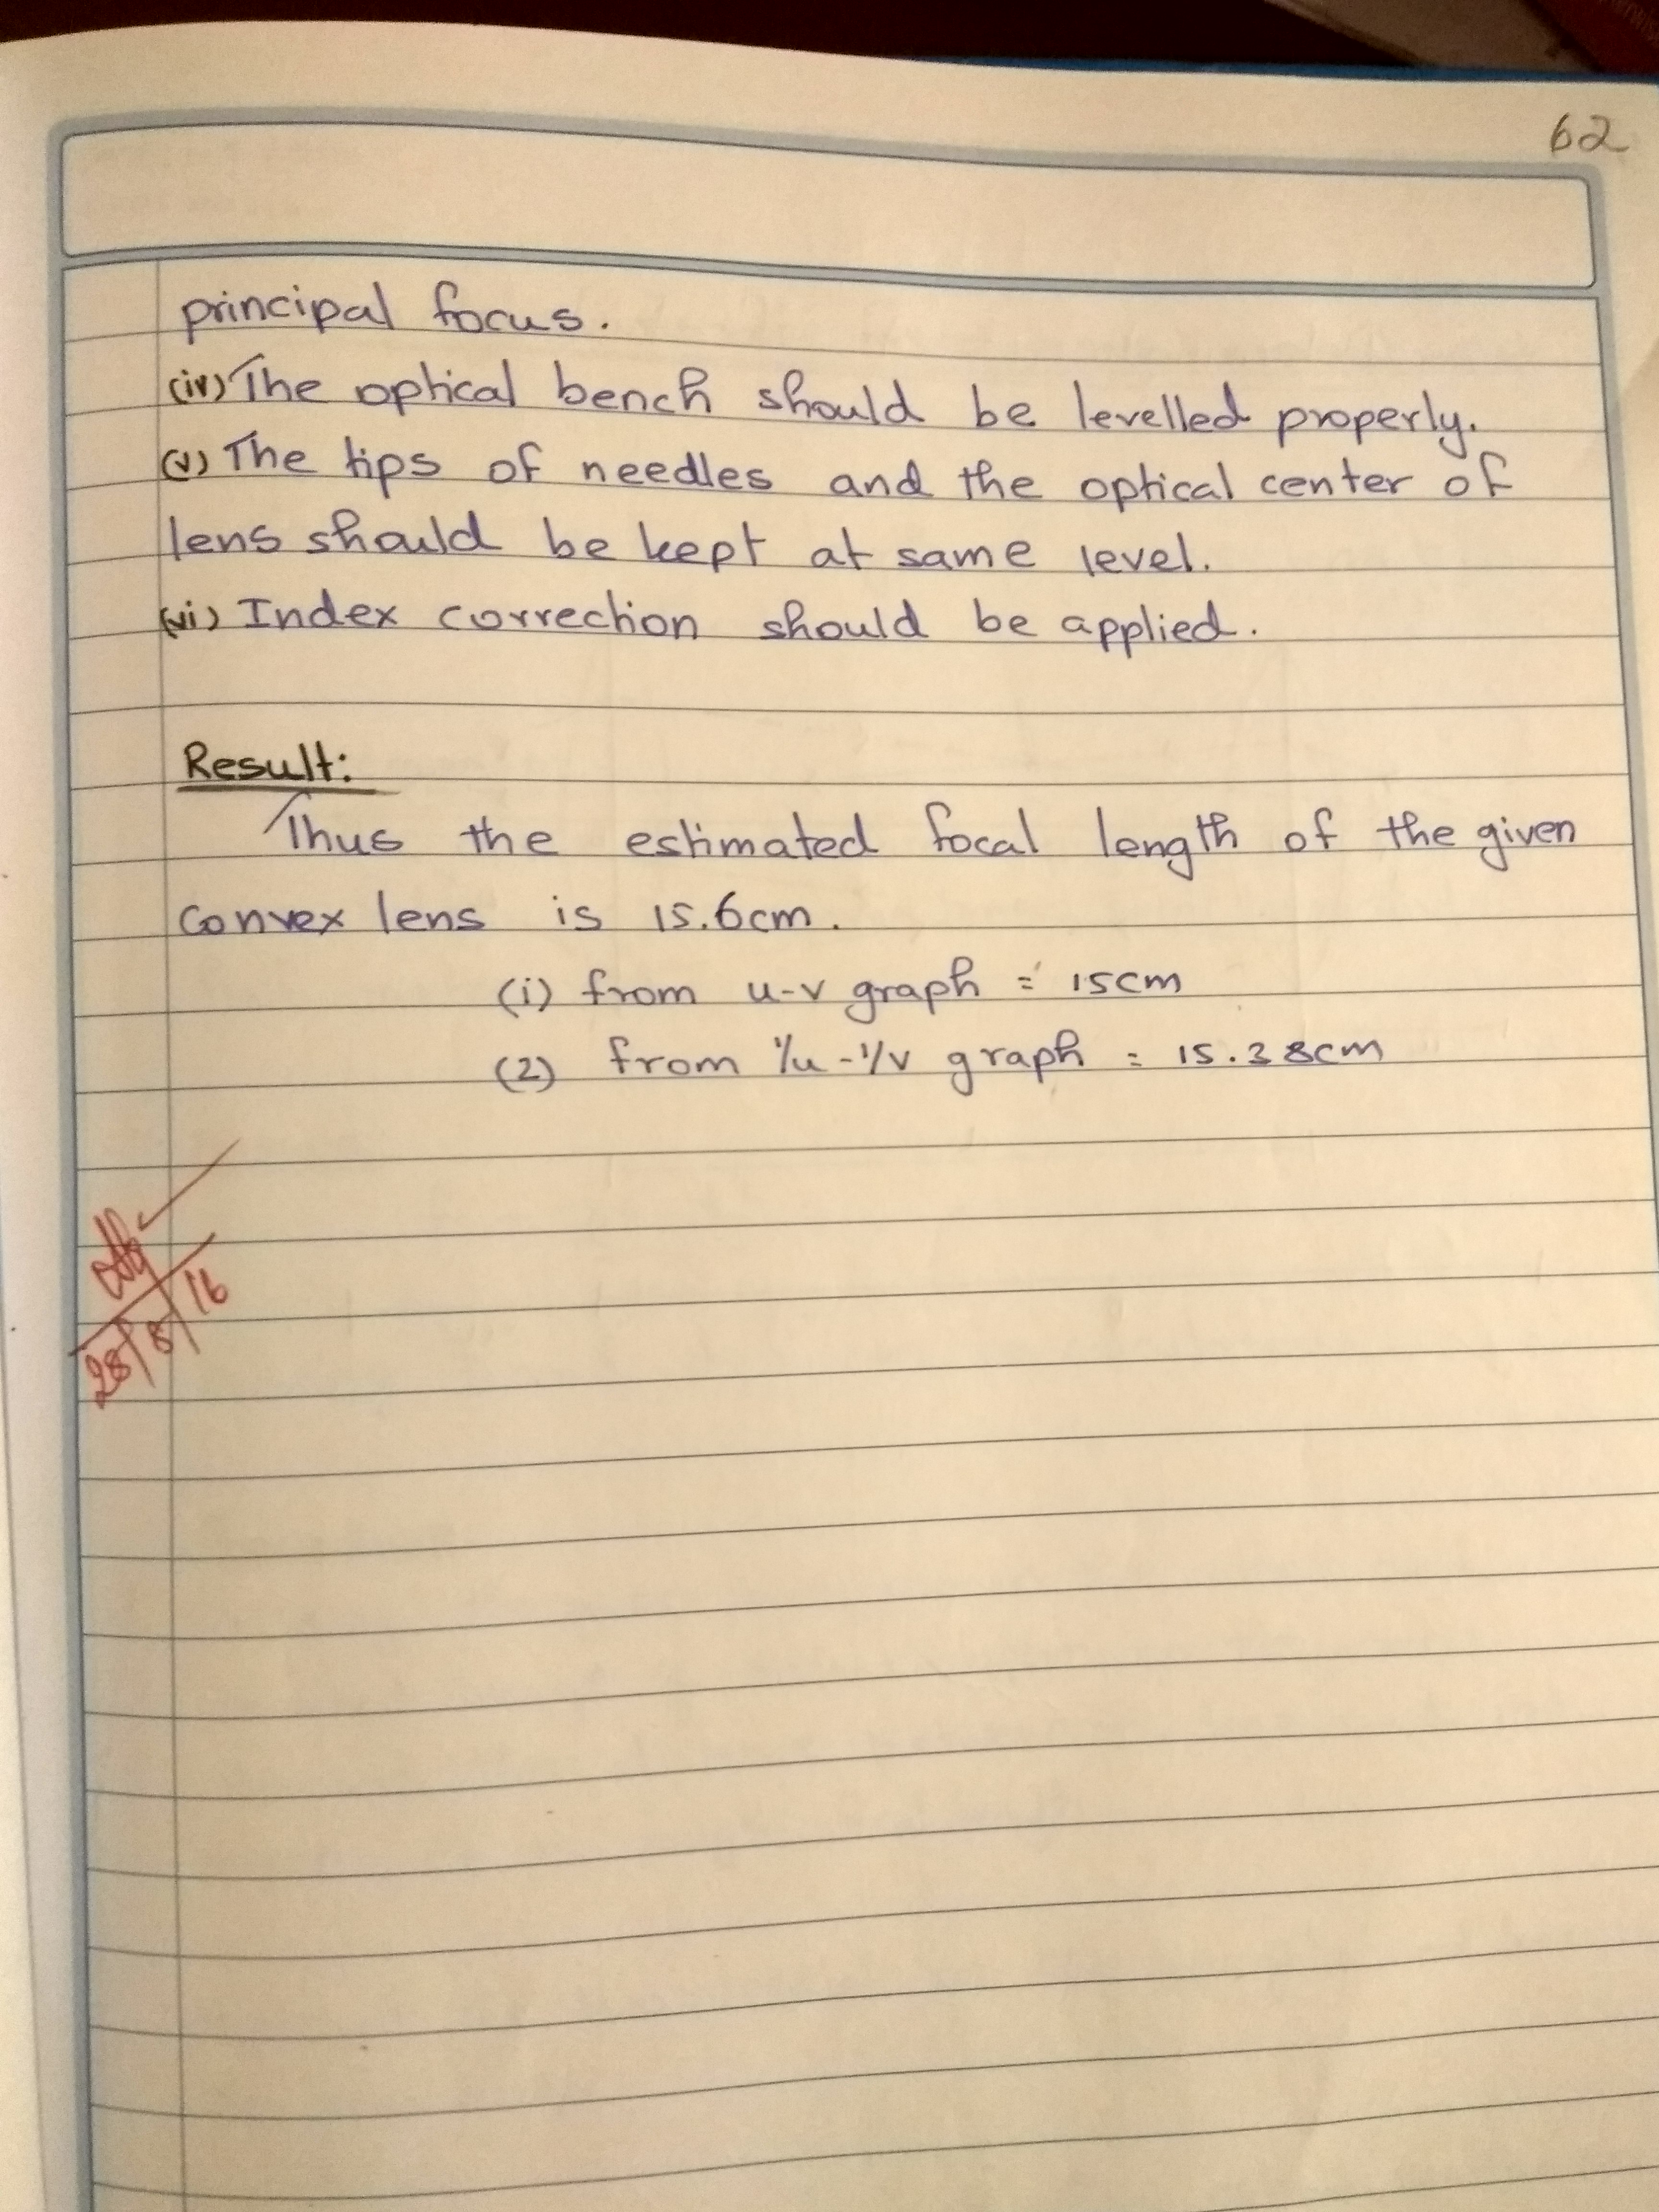 62
principal focus.
(iv) The optical bench should be levelled properly.
(v) The tips of needles and the optical center of
lens should be kept at same level.
(vi) Index correction should be applied.
Result:
Thus the estimated focal length of the given
convex lens is 15.6cm.
(i) from u-v graph = 15cm
(2) from 1/u - 1/v graph = 15.38cm
28/8/16